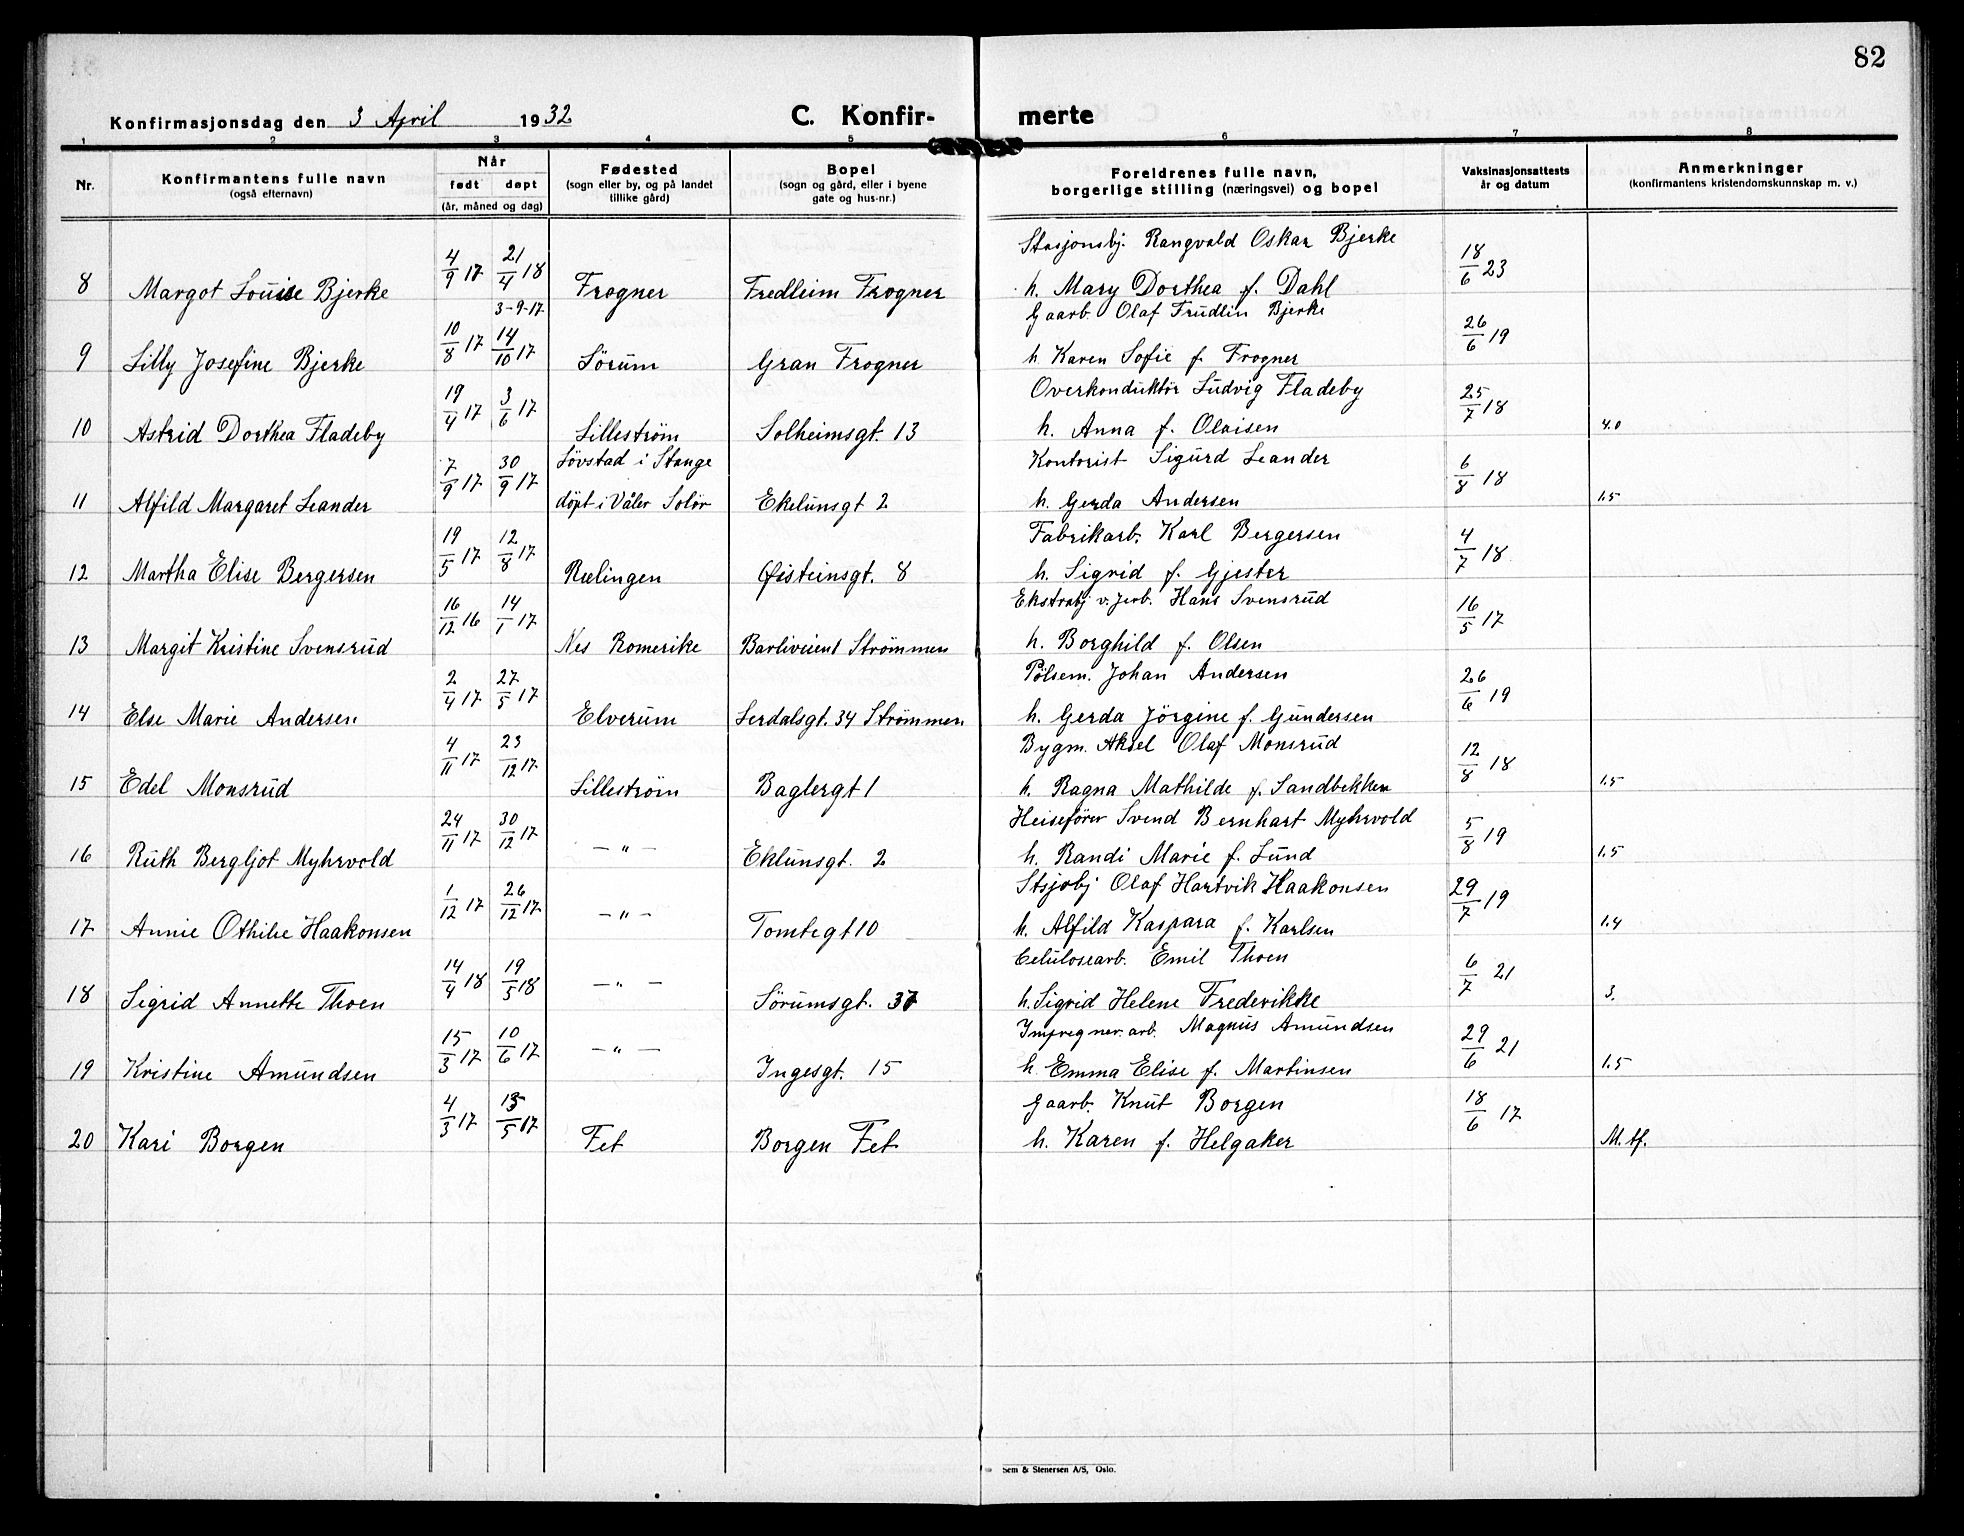 82
Konfirmasjonsdag den 3 April 1932 C. Konfir- merte
1 2 3 4 5 6 7 8
Nr. Konfirmantens fulle navn (også efternavn) Når født døpt (år, måned og dag) Fødested (sogn eller by, og på landet tillike gård) Bopel (sogn og gård, eller i byene gate og hus-nr.) Foreldrenes fulle navn, borgerlige stilling (næringsvei) og bopel Vaksinasjonsattests år og datum Anmerkninger (konfirmantens kristendomskunnskap m. v.)
Stasjonsbj. Rangvald Oskar Bjerke
8 Margot Louise Bjerke 4/9 17 21/4 18 Frogner Fredheim Frogner h. Mary Dorthea f. Dahl 18/6 23
3-9-17 Gaarb. Olaf Frudlin Bjerke
9 Lilly Josefine Bjerke 10/8 17 14/10 17 Sørum Gran Frogner h. Karen Sofie f. Frogner 26/6 19
Overkonduktör Ludvig Fladeby
10 Astrid Dorthea Fladeby 19/4 17 3/6 17 Lilleström Solheimsgt. 13 h. Anna f. Olaisen 25/7 18 4.0
Lövstad i Stange Kontorist Sigurd Leander
11 Alfild Margaret Leander 7/9 17 30/9 17 döpt i Våler Solör Ekelunsgt 2 h. Gerda Andersen 6/8 18 1.5
Fabrikarb. Karl Bergersen
12 Martha Elise Bergersen 19/5 17 12/8 17 Rælingen Øisteinsgt. 8 h. Sigrid f. Gjester 4/7 18
Ekstrabj v. Jerb. Hans Svensrud
13 Margit Kristine Svensrud 16/12 16 14/1 17 Nes Romerike Barliveient Strømmen h. Borghild f. Olsen 16/5 17
Pölsem. Johan Andersen
14 Else Marie Andersen 2/4 17 27/5 17 Elverum Lerdalsgt. 34 Strømmen h. Gerda Jörgine f. Gundersen 26/6 19
Bygm. Aksel Olaf Monsrud
15 Edel Monsrud 4/11 17 23/12 17 Lilleström Baglergt 1 h. Ragna Mathilde f. Sandbekken 12/8 18 1.5
Heisefører Svend Bernhart Myhrvold
16 Ruth Bergljot Myhrvold 24/11 17 30/12 17 — " — Eklunsgt. 2 h. Randi Marie f. Lund 5/8 19 1.5
Stsjobj Olaf Hartvik Haakonsen
17 Annie Othilie Haakonsen 1/12 17 26/12 17 — " — Tomtegt 10 h. Alfild Kaspara f. Karlsen 29/7 19 1.4
Celulosearb. Emil Thoen
18 Sigrid Annette Thoen 14/4 18 19/5 18 — " — Sørumsgt. 37 h. Sigrid Helene Frederikke 6/7 21 3.
Impregner. arb. Magnus Amundsen
19 Kristine Amundsen 15/3 17 10/6 17 — " — Ingesgt. 15 h. Emma Elise f. Martinsen 29/6 21 1.5
Gaarb. Knut Borgen
20 Kari Borgen 4/3 17 13/5 17 Fet Borgen Fet h. Karen f. Helgaker 18/6 17 M.tf.
Sem & Stenersen A/S, Oslo.